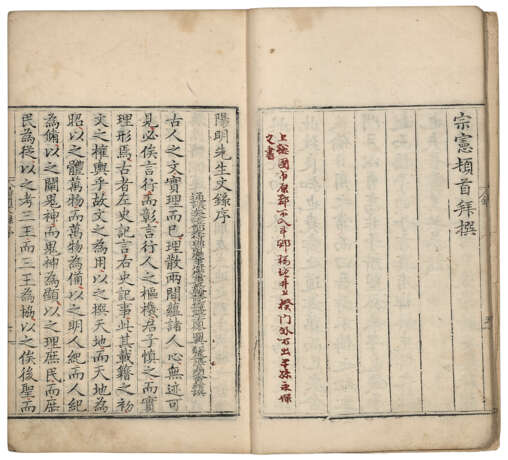 宗憲頓首拜撰
上總國市原郡不入斗鄉井上揆門外不出子孫永保
之書
陽明先生文錄序
古人之文實理而已理散兩間蘊諸人心無迹可
見必俟言行而彰言行人之樞機君子慎之而實
理形焉古者左史記言右史記事此其載籍之初
文之權輿乎故文之為用以之撰天地而天地為
昭以之體萬物而萬物為備以之明人紀而人紀
為脩以之闡鬼神而鬼神為顯以之理庶民而庶
民為從以之考三王而三王為協以之俟後聖而